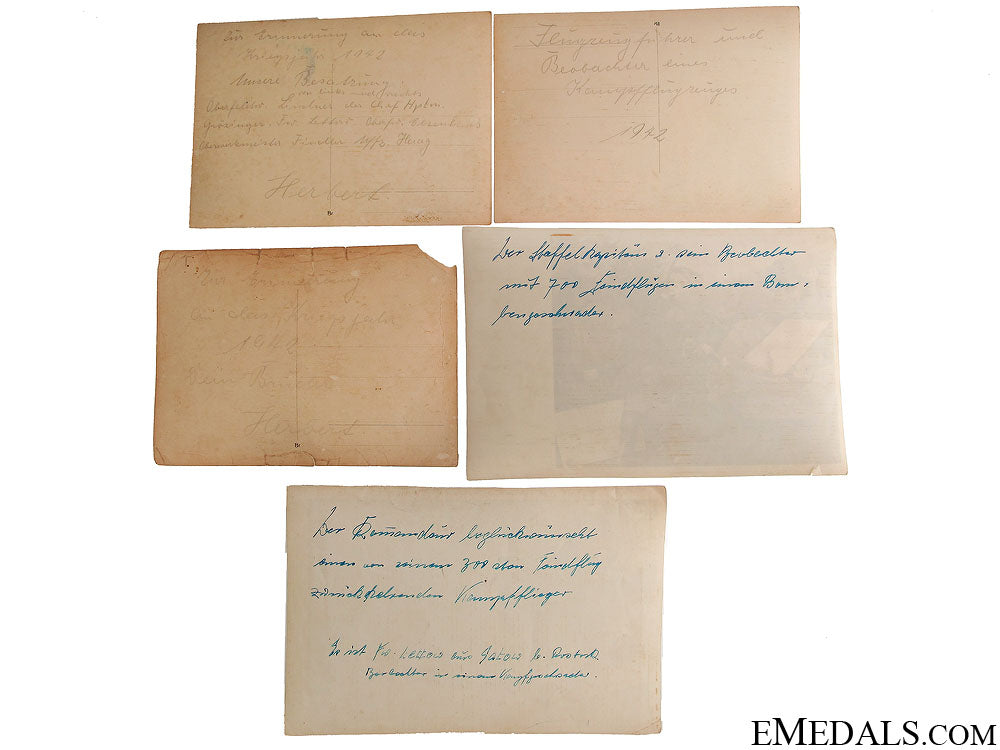 Zur Erinnerung an das
Kriegsjahr 1942
Unsere Besatzung.
von links nach rechts
Oberfeldw. Lindner der Chef Hptm.
Fw. Lettow. Oberfw.
Fiedler
Herbert.
Flugzeugführer und
Beobachter eines
Kampfflugzeuges
1942
Zur Erinnerung
an das Kriegsjahr
1942
Dein Bruder
Herbert
Der Staffelkapitän u. sein Beobachter
mit 700 Feindflügen in einem Bom-
bengeschwader.
Der Komandeur beglückwünscht
einen von seinem 300 sten Feindflug
zurückkehrenden Kampfflieger
Es ist Fw. Lettow aus
Beobachter in einem Kampfgeschwader.
EMEDALS.COM